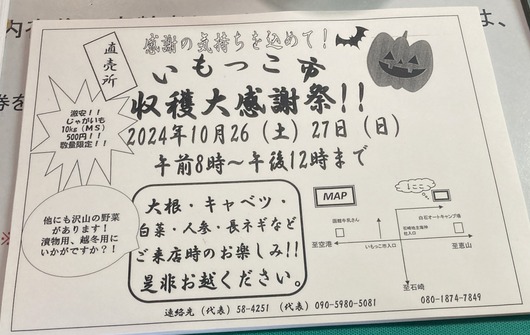 直売所
感謝の気持ちを込めて！
いもっこ市
収穫大感謝祭！！
2024年10月26（土）27日（日）
午前8時～午後12時まで
激安！！
じゃがいも
10kg（MS）
500円！！
数量限定！！
他にも沢山の野菜
があります！
漬物用、越冬用に
いかがですか？！
大根・キャベツ・
白菜・人参・長ネギなど
ご来店時のお楽しみ!!
是非お越しください。
MAP
ここ
白石オートキャンプ場
至空港
いもっこ市入口
至恵山
至石崎
連絡先（代表）58-4251 （代表）090-5980-5081
080-1874-7849